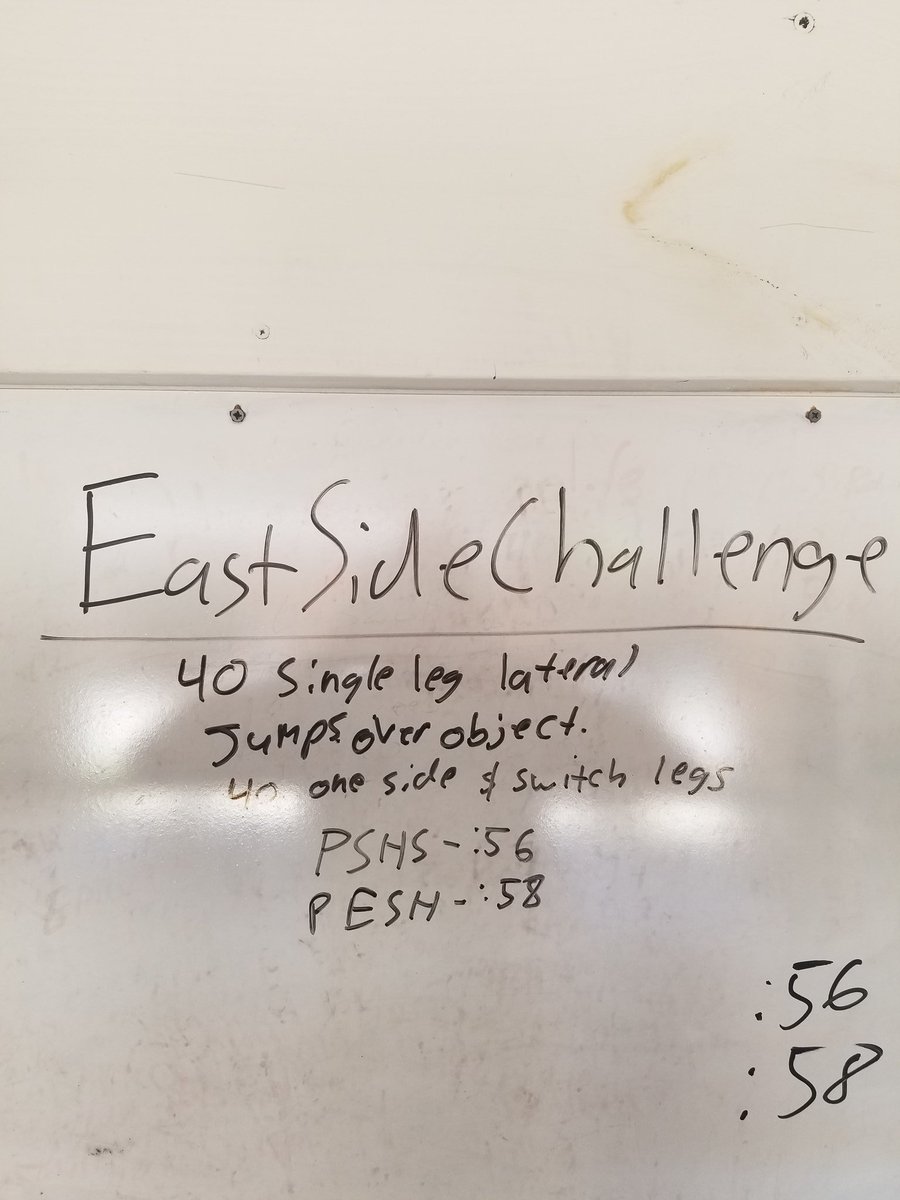 EastSideChallenge
40 Single leg lateral
Jumps over object.
40 one side & switch legs
PSHS - :56
PESH - :58
:56
:58